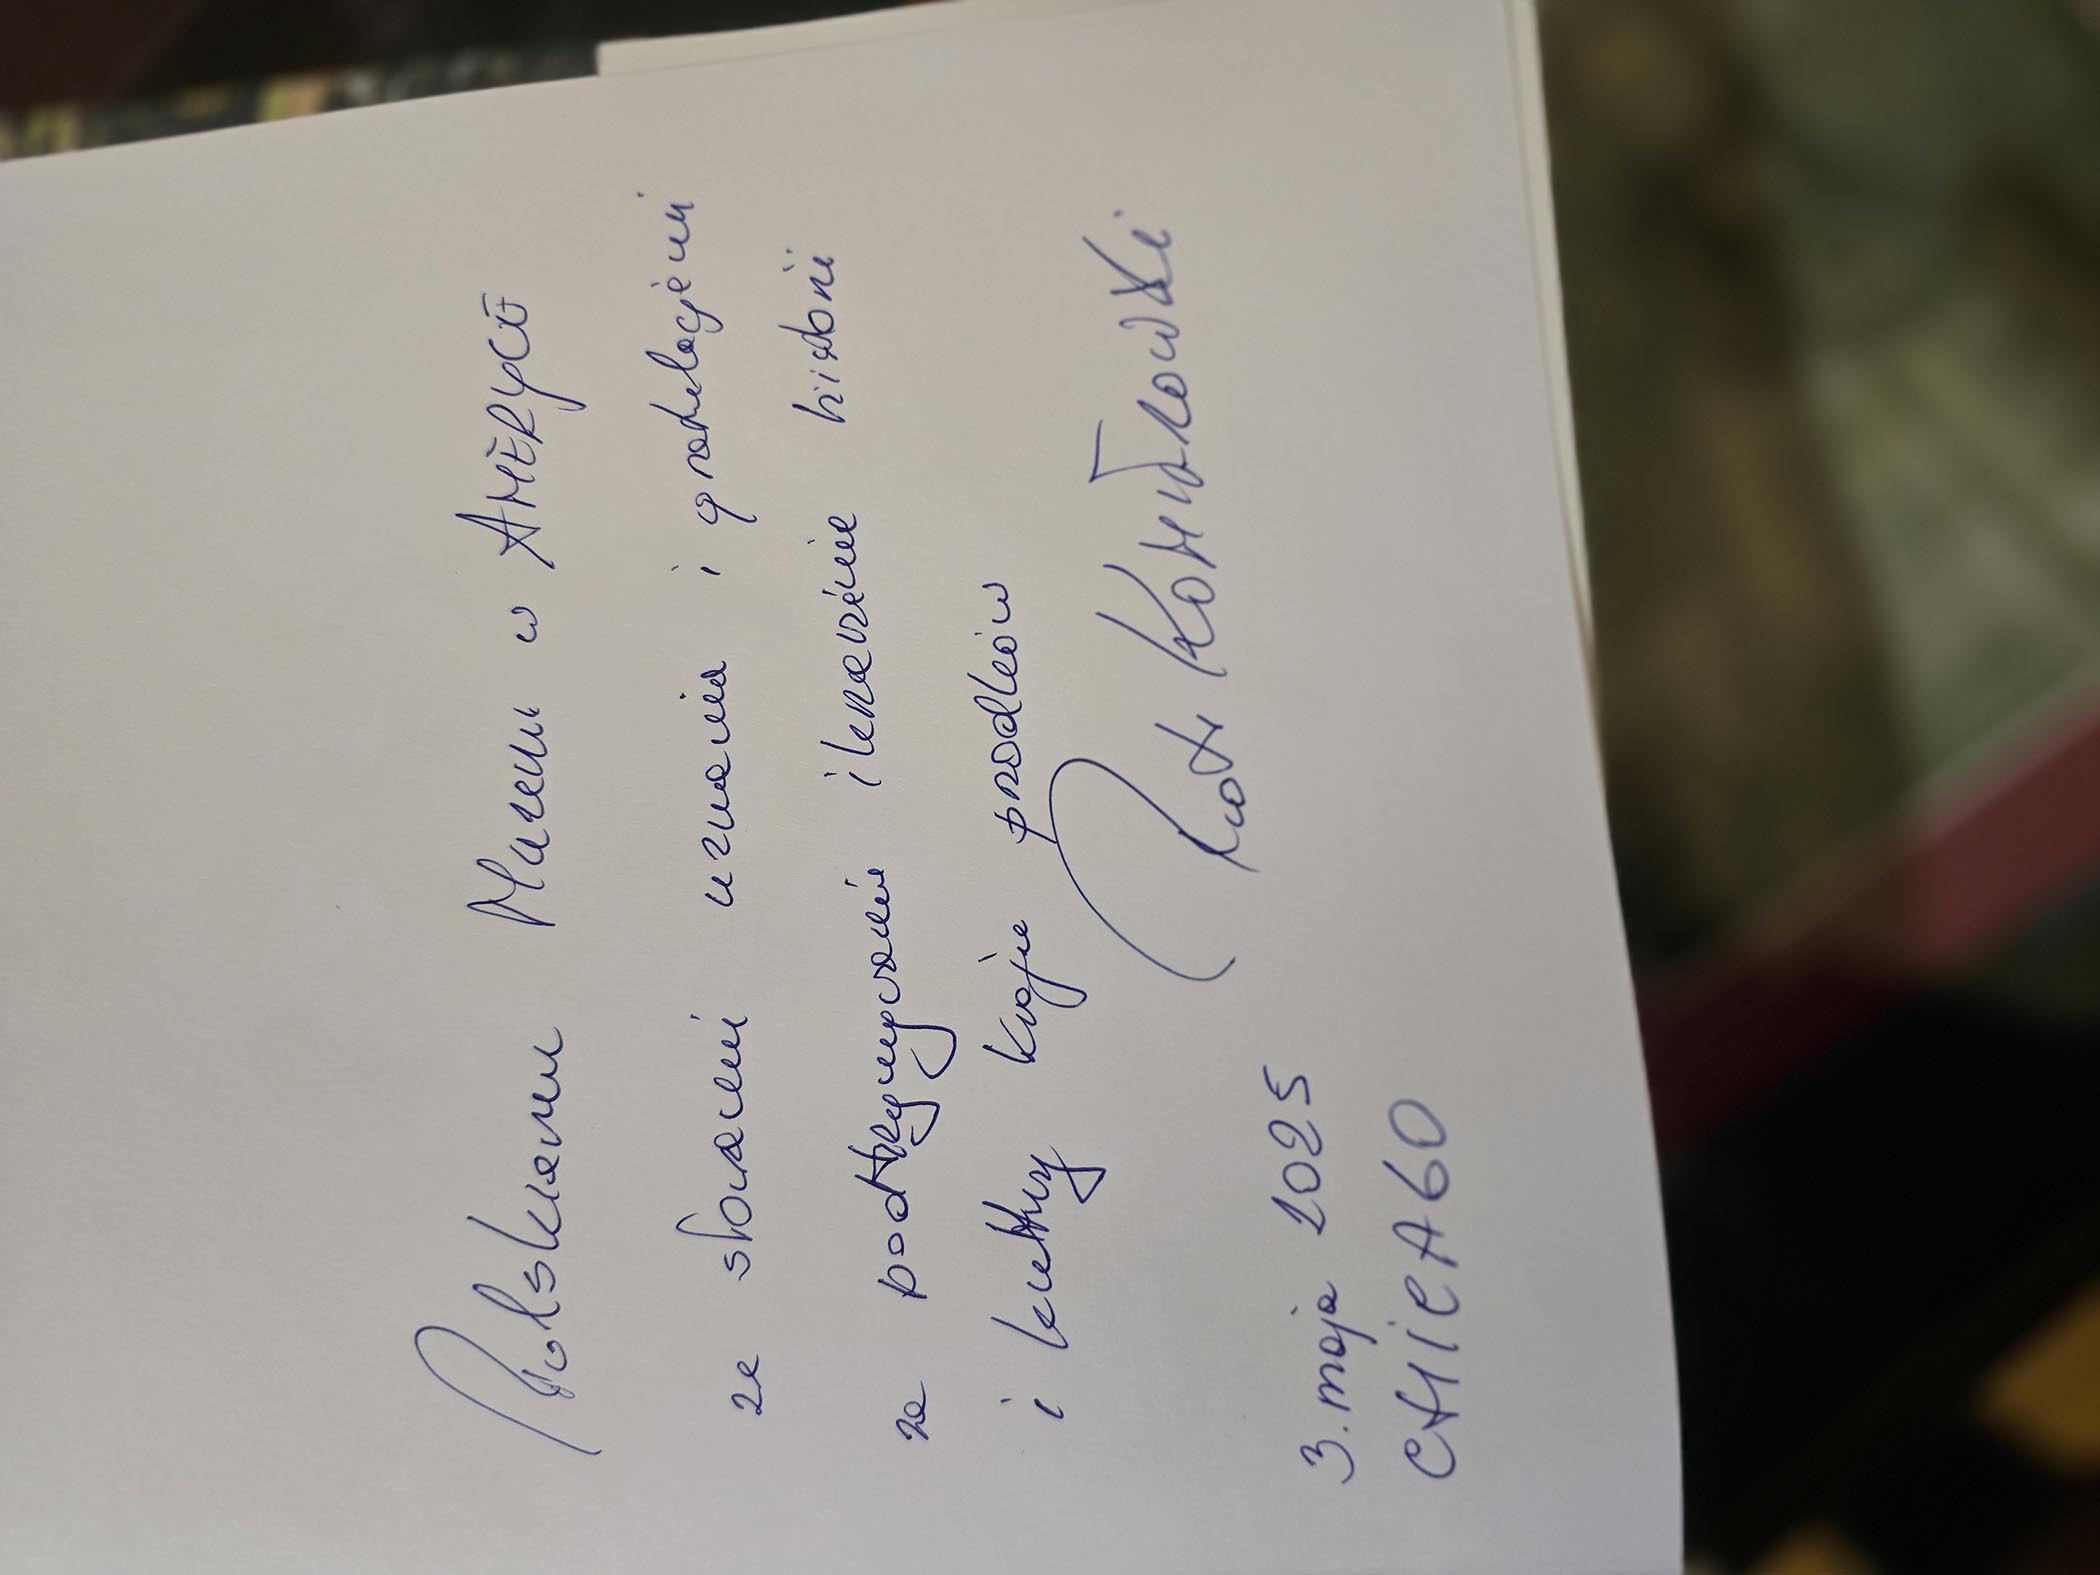 Polskiemu Muzeum w AMERYCE
ze słowami uznania i gratulacjemi
za podtrzymywanie i krzewienie historii
i kultury kraju przodków
Piotr KOMOROWSKI
3. maja 2025
CHICAGO